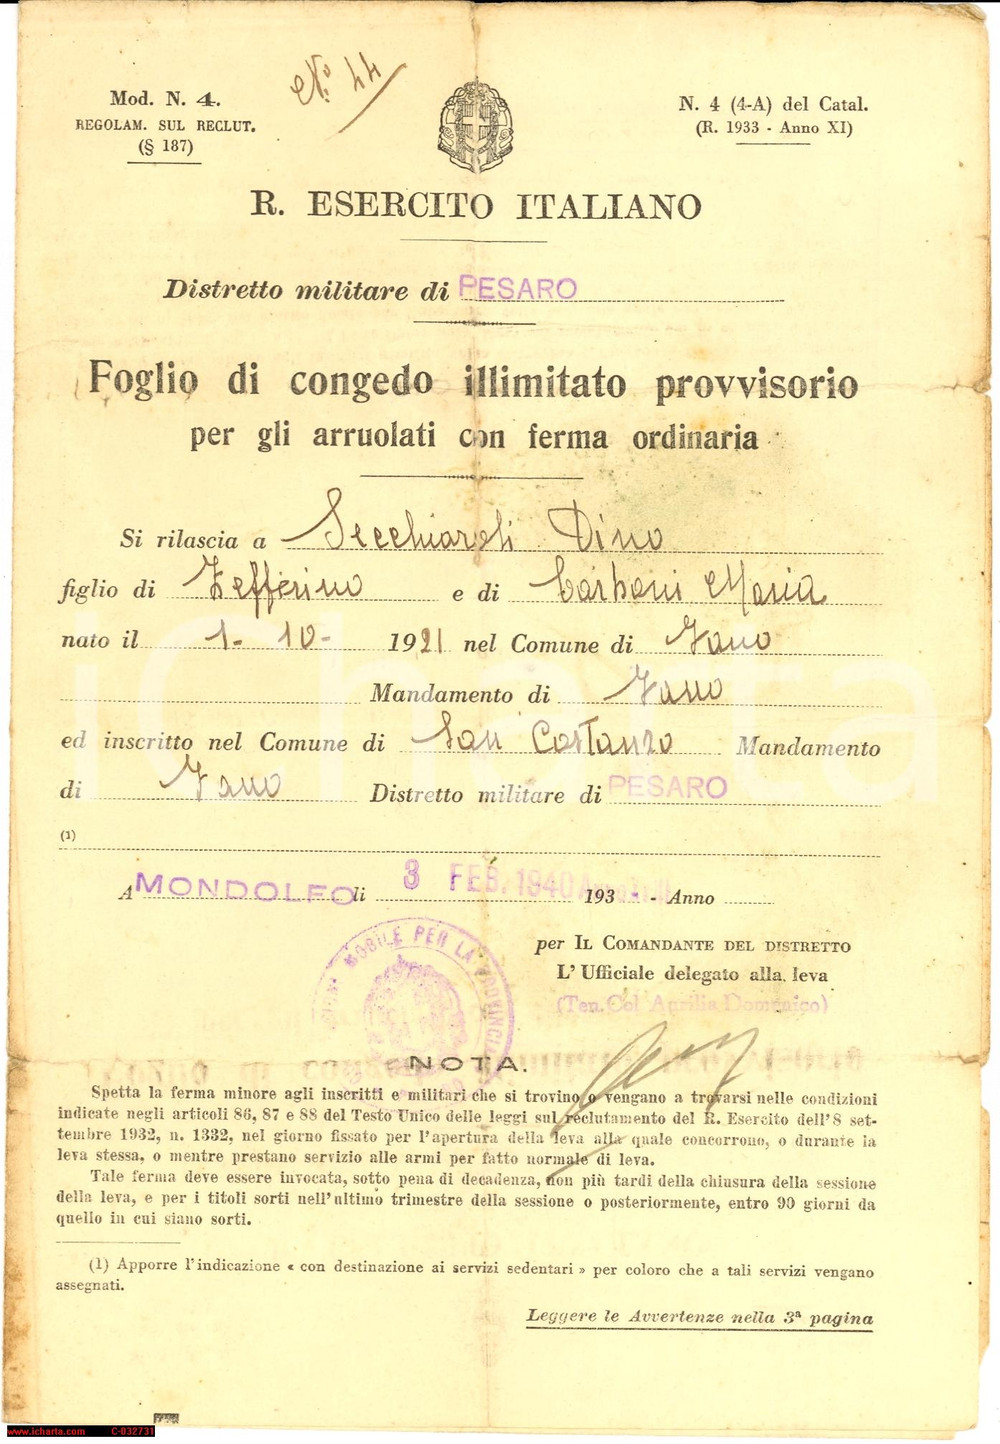 Mod. N. 4.
REGOLAM. SUL RECLUT.
(§ 187)
N.° 44
N. 4 (4-A) del Catal.
(R. 1933 - Anno XI)
R. ESERCITO ITALIANO
Distretto militare di PESARO
Foglio di congedo illimitato provvisorio
per gli arruolati con ferma ordinaria
Si rilascia a Secchiaroli Dino
figlio di Zefferino e di Carboni Maria
nato il 1 - 10 - 1921 nel Comune di Fano
Mandamento di Fano
ed inscritto nel Comune di San Costanzo Mandamento
di Fano Distretto militare di PESARO
(1)
A MONDOLFO li 3 FEB. 1940 193 - - Anno
per IL COMANDANTE DEL DISTRETTO
L'Ufficiale delegato alla leva
(Ten. Col Aprilis Domenico)
MOBILE PER LA PROVINCIA
NOTA.
Spetta la ferma minore agli inscritti e militari che si trovino o vengano a trovarsi nelle condizioni
indicate negli articoli 86, 87 e 88 del Testo Unico delle leggi sul reclutamento del R. Esercito dell'8 set-
tembre 1932, n. 1332, nel giorno fissato per l'apertura della leva alla quale concorrono, o durante la
leva stessa, o mentre prestano servizio alle armi per fatto normale di leva.
Tale ferma deve essere invocata, sotto pena di decadenza, non più tardi della chiusura della sessione
della leva, e per i titoli sorti nell'ultimo trimestre della sessione o posteriormente, entro 90 giorni da
quello in cui siano sorti.
(1) Apporre l'indicazione « con destinazione ai servizi sedentari » per coloro che a tali servizi vengano
assegnati.
Leggere le Avvertenze nella 3ª pagina
icharta
www.icharta.com C-032731